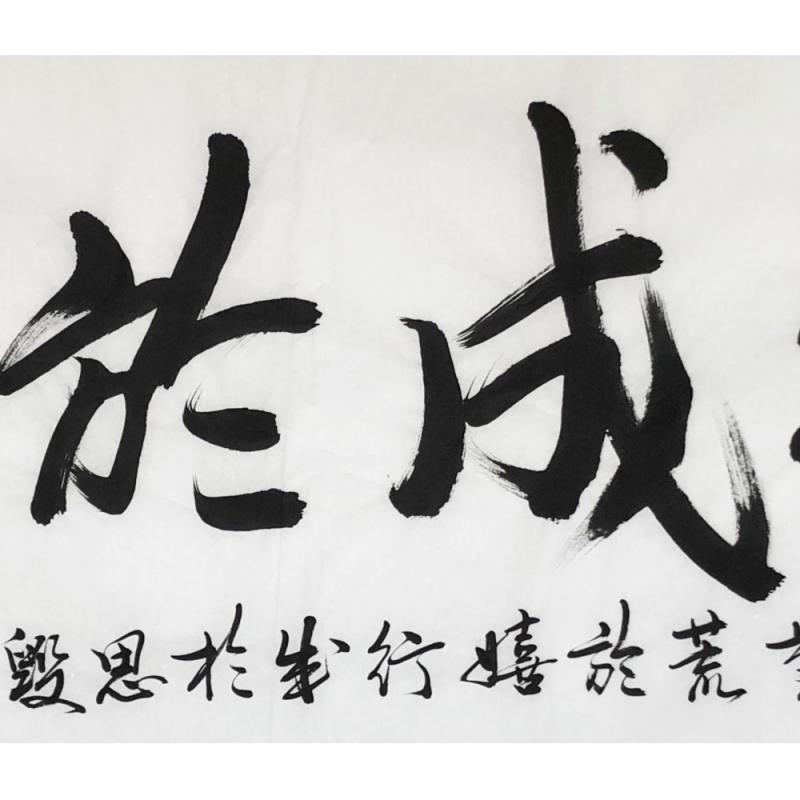 成於
荒於嬉行成於思毀